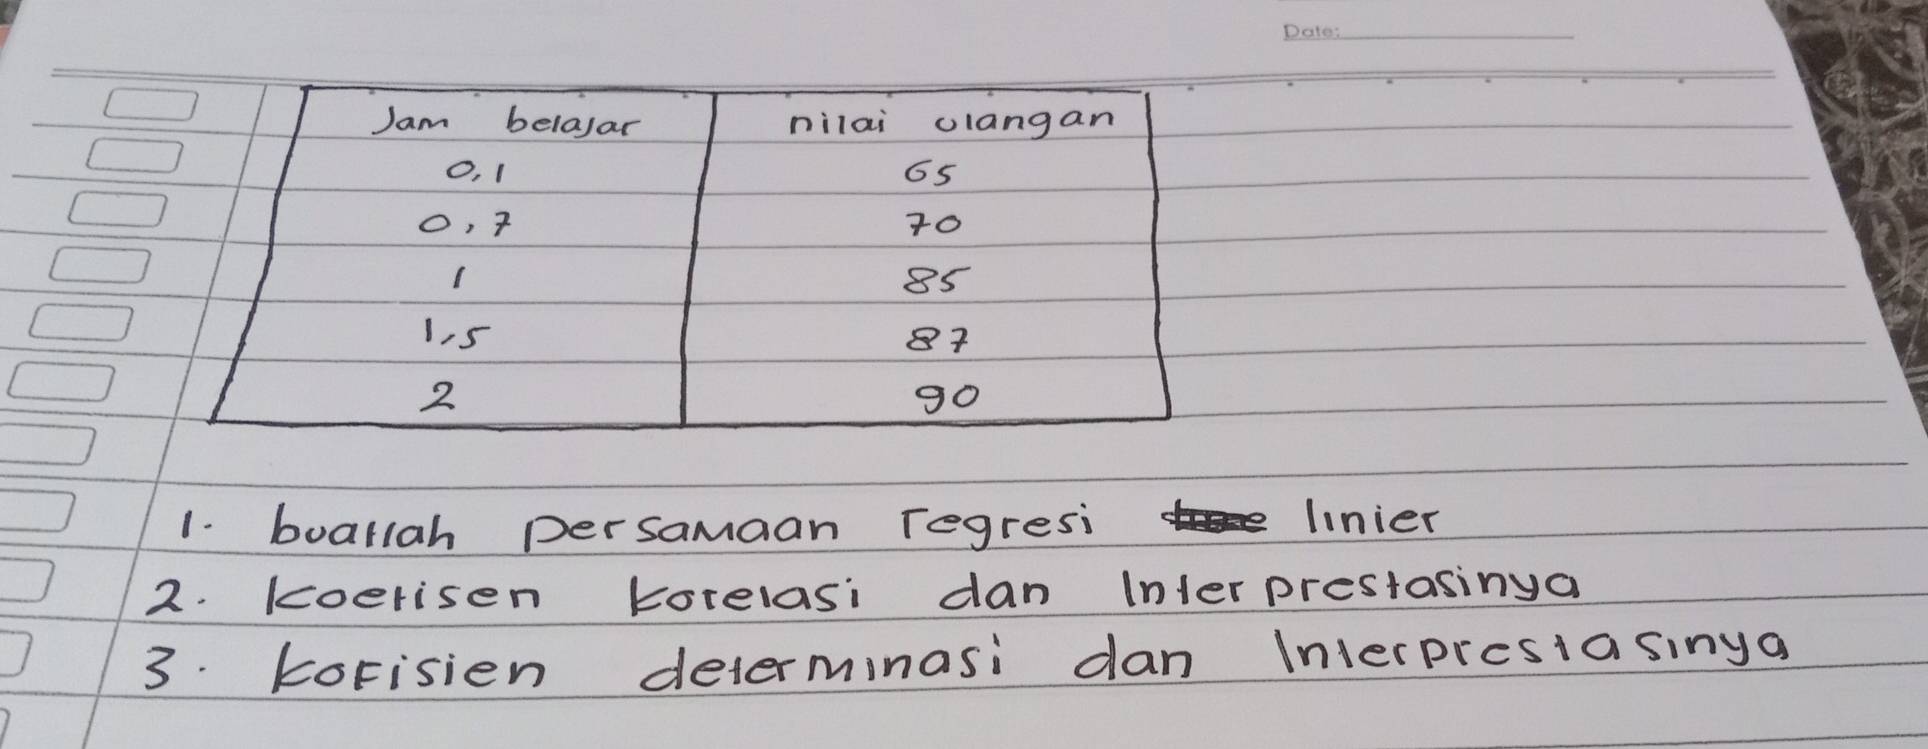 Date:
Jam belajar nilai ulangan
0,1 65
0,7 70
1 85
1,5 87
2 90
1. buatlah persamaan regresi linier
2. koefisen korelasi dan Interprestasinya
3. kofisien determinasi dan Interprestasinya